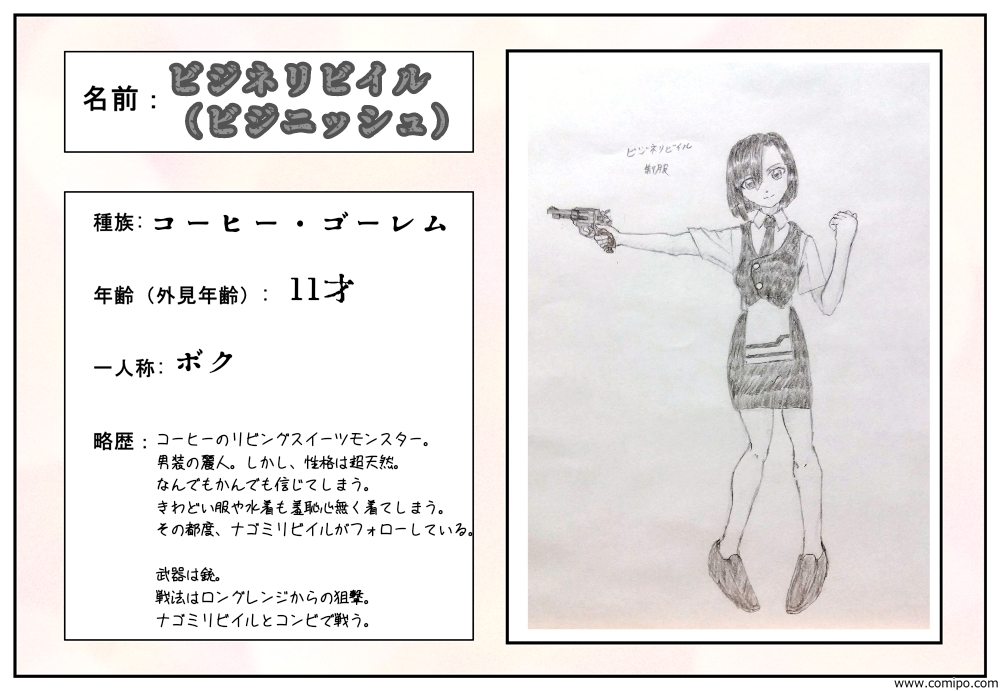 名前：ビジネリビイル
（ビジニッシュ）
種族：コーヒー・ゴーレム
年齢（外見年齢）： 11才
一人称：ボク
略歴：コーヒーのリビングスイーツモンスター。
男装の麗人。しかし、性格は超天然。
なんでもかんでも信じてしまう。
きわどい服や水着も羞恥心無く着てしまう。
その都度、ナゴミリビイルがフォローしている。
武器は銃。
戦法はロングレンジからの狙撃。
ナゴミリビイルとコンビで戦う。
ビジネリビイル
制服
www.comipo.com